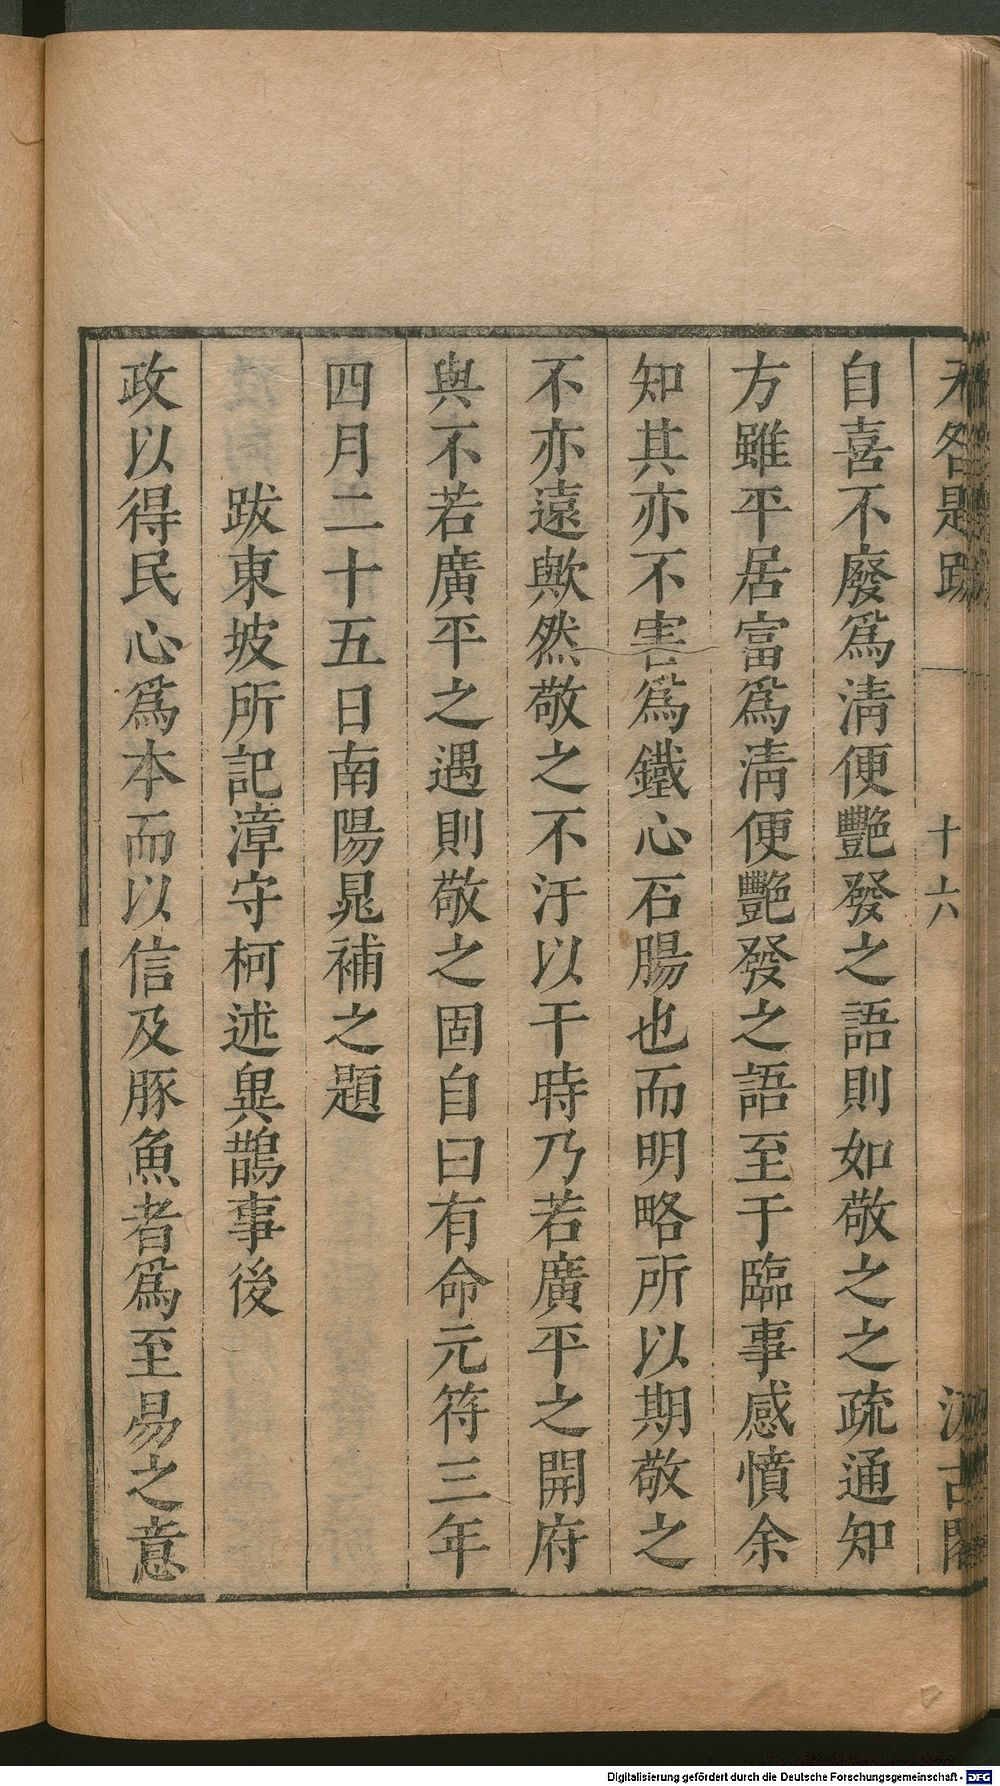 无咎題跋
十六
汲古閣
自喜不廢爲淸便艷發之語則如敬之之疏通知
方雖平居富爲淸便艷發之語至于臨事感憤余
知其亦不害爲鐵心石腸也而明略所以期敬之
不亦遠歟然敬之不汙以干時乃若廣平之開府
與不若廣平之遇則敬之固自曰有命元符三年
四月二十五日南陽晁補之題
跋東坡所記漳守柯述異鵲事後
政以得民心爲本而以信及豚魚者爲至易之意
Digitalisierung gefördert durch die Deutsche Forschungsgemeinschaft - DFG